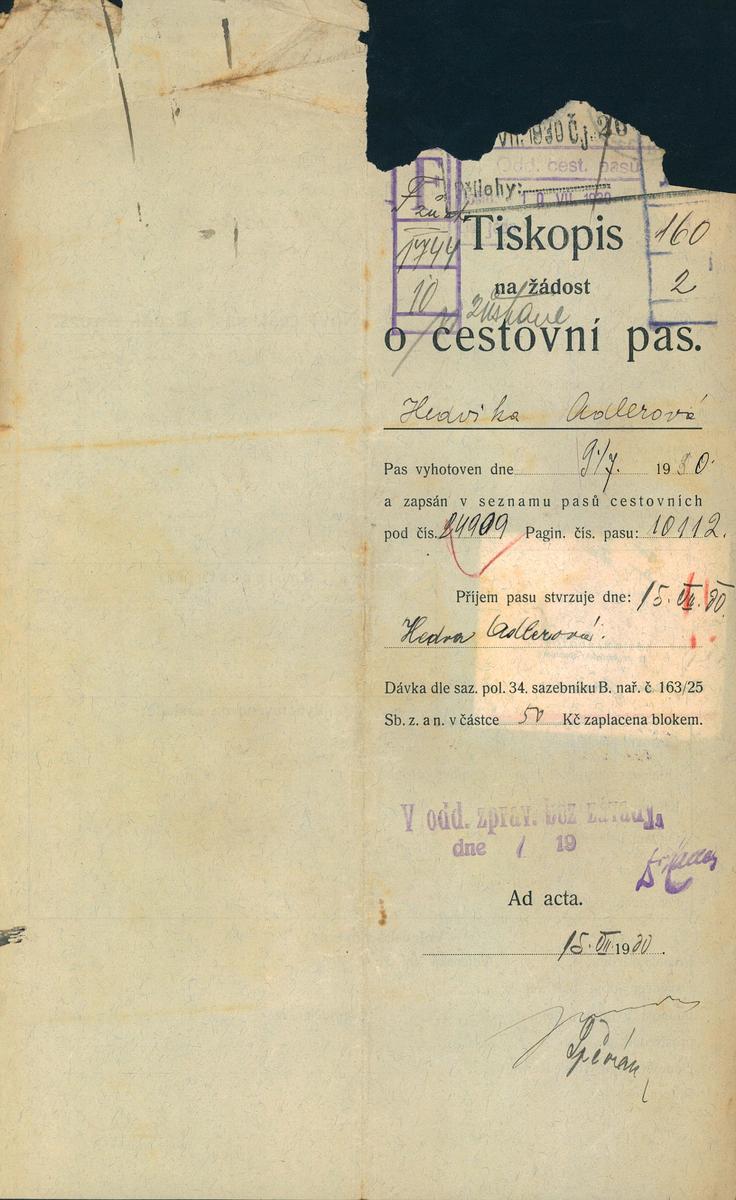 VII. 1930 Č.j. 20
Odd. cest. pasů
Přílohy:
9. VII. 1930
F
1744
10
160
2
Tiskopis
na žádost
zůstane
o cestovní pas.
Hedvika Adlerová
Pas vyhotoven dne 9./7. 1930.
a zapsán v seznamu pasů cestovních
pod čís. 24909 Pagin. čís. pasu: 10112.
Příjem pasu stvrzuje dne: 15. VII. 30
Hedva Adlerová.
Dávka dle saz. pol. 34. sazebníku B. nař. č 163/25
Sb. z. a n. v částce 50 Kč zaplacena blokem.
V odd. zprav. bez závady.
dne / 19
Ad acta.
15. VII. 1930.